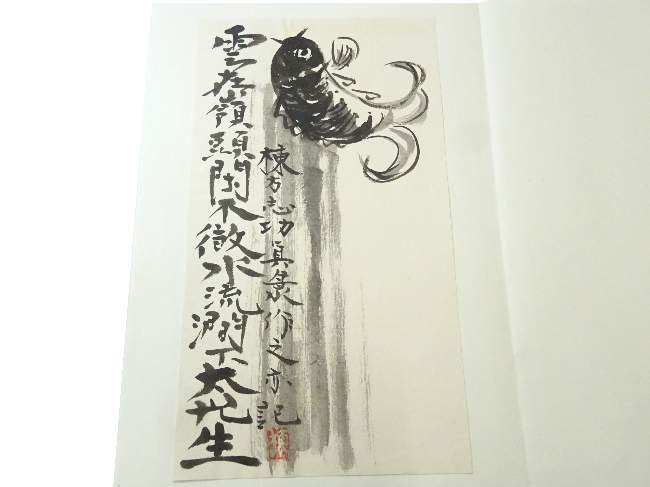 雲在嶺頭閑不徹水流澗下太忙生
棟方志功眞作之亦記